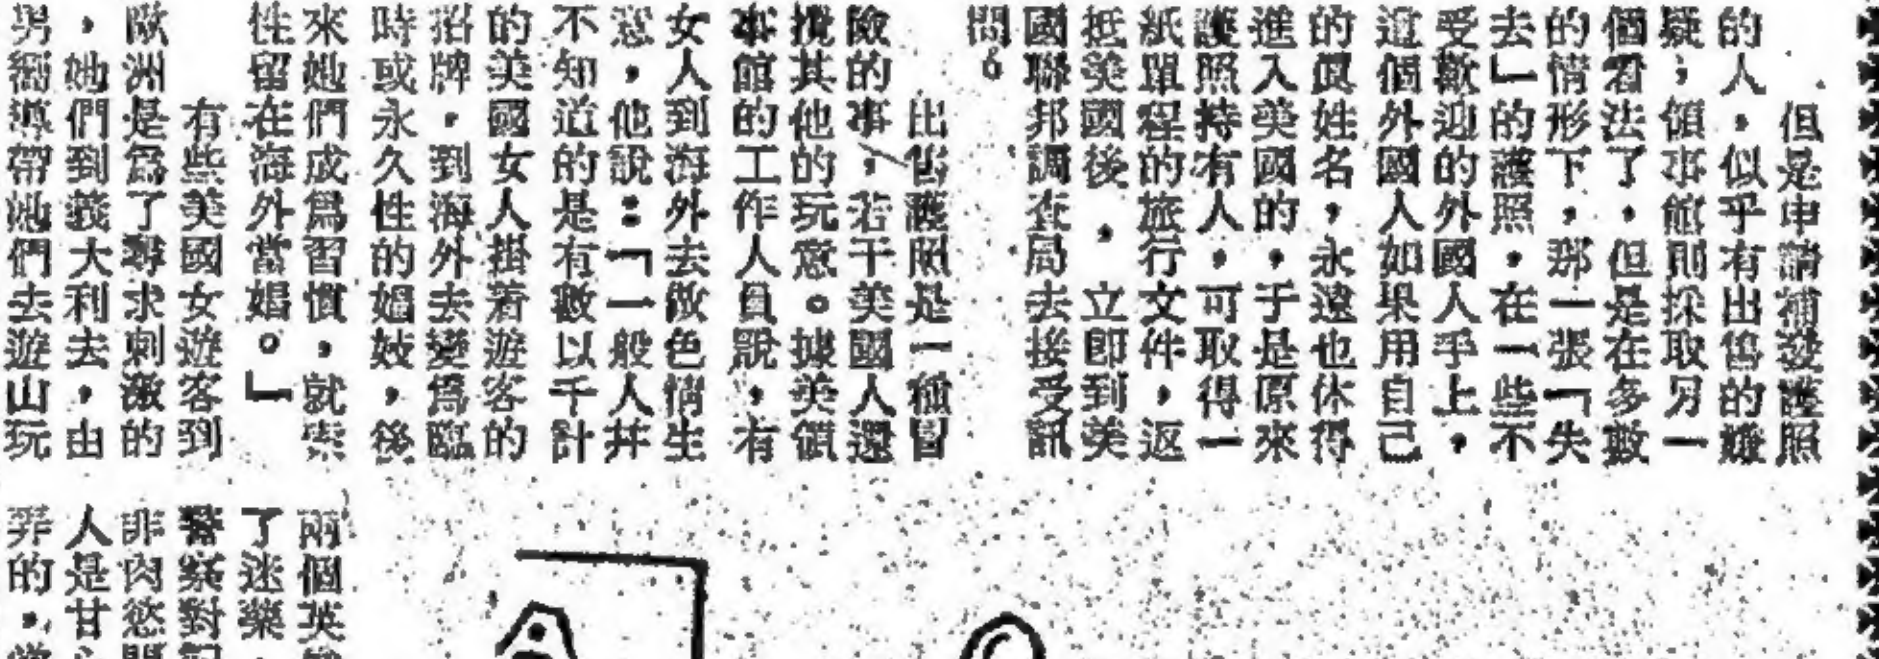 但是申請補發護照
的人，似乎有出售的嫌
疑，領事館則採取另一
個看法了，但是在多數
的情形下，那一張「失
去」的護照，在一些不
受歡迎的外國人手上，
這個外國人如果用自己
的眞姓名，永遠也休得
進入美國的，于是原來
護照持有人，可取得一
紙單程的旅行文件，返
抵美國後，立即到美
國聯邦調查局去接受訊
問。
出售護照是一種冒
險的事，若干美國人還
攪其他的玩意。據美領
事館的工作人員說，有
女人到海外去做色情生
意，他說：「一般人幷
不知道的是有數以千計
的美國女人掛着遊客的
招牌，到海外去變爲臨
時或永久性的娼妓，後
來她們成爲習慣，就索
性留在海外當娼。」
有些美國女遊客到
歐洲是爲了尋求刺激的
，她們到義大利去，由
男嚮導帶她們去遊山玩
兩個英
了迷藥，
警察對
非肉慾
人是甘
罪的，